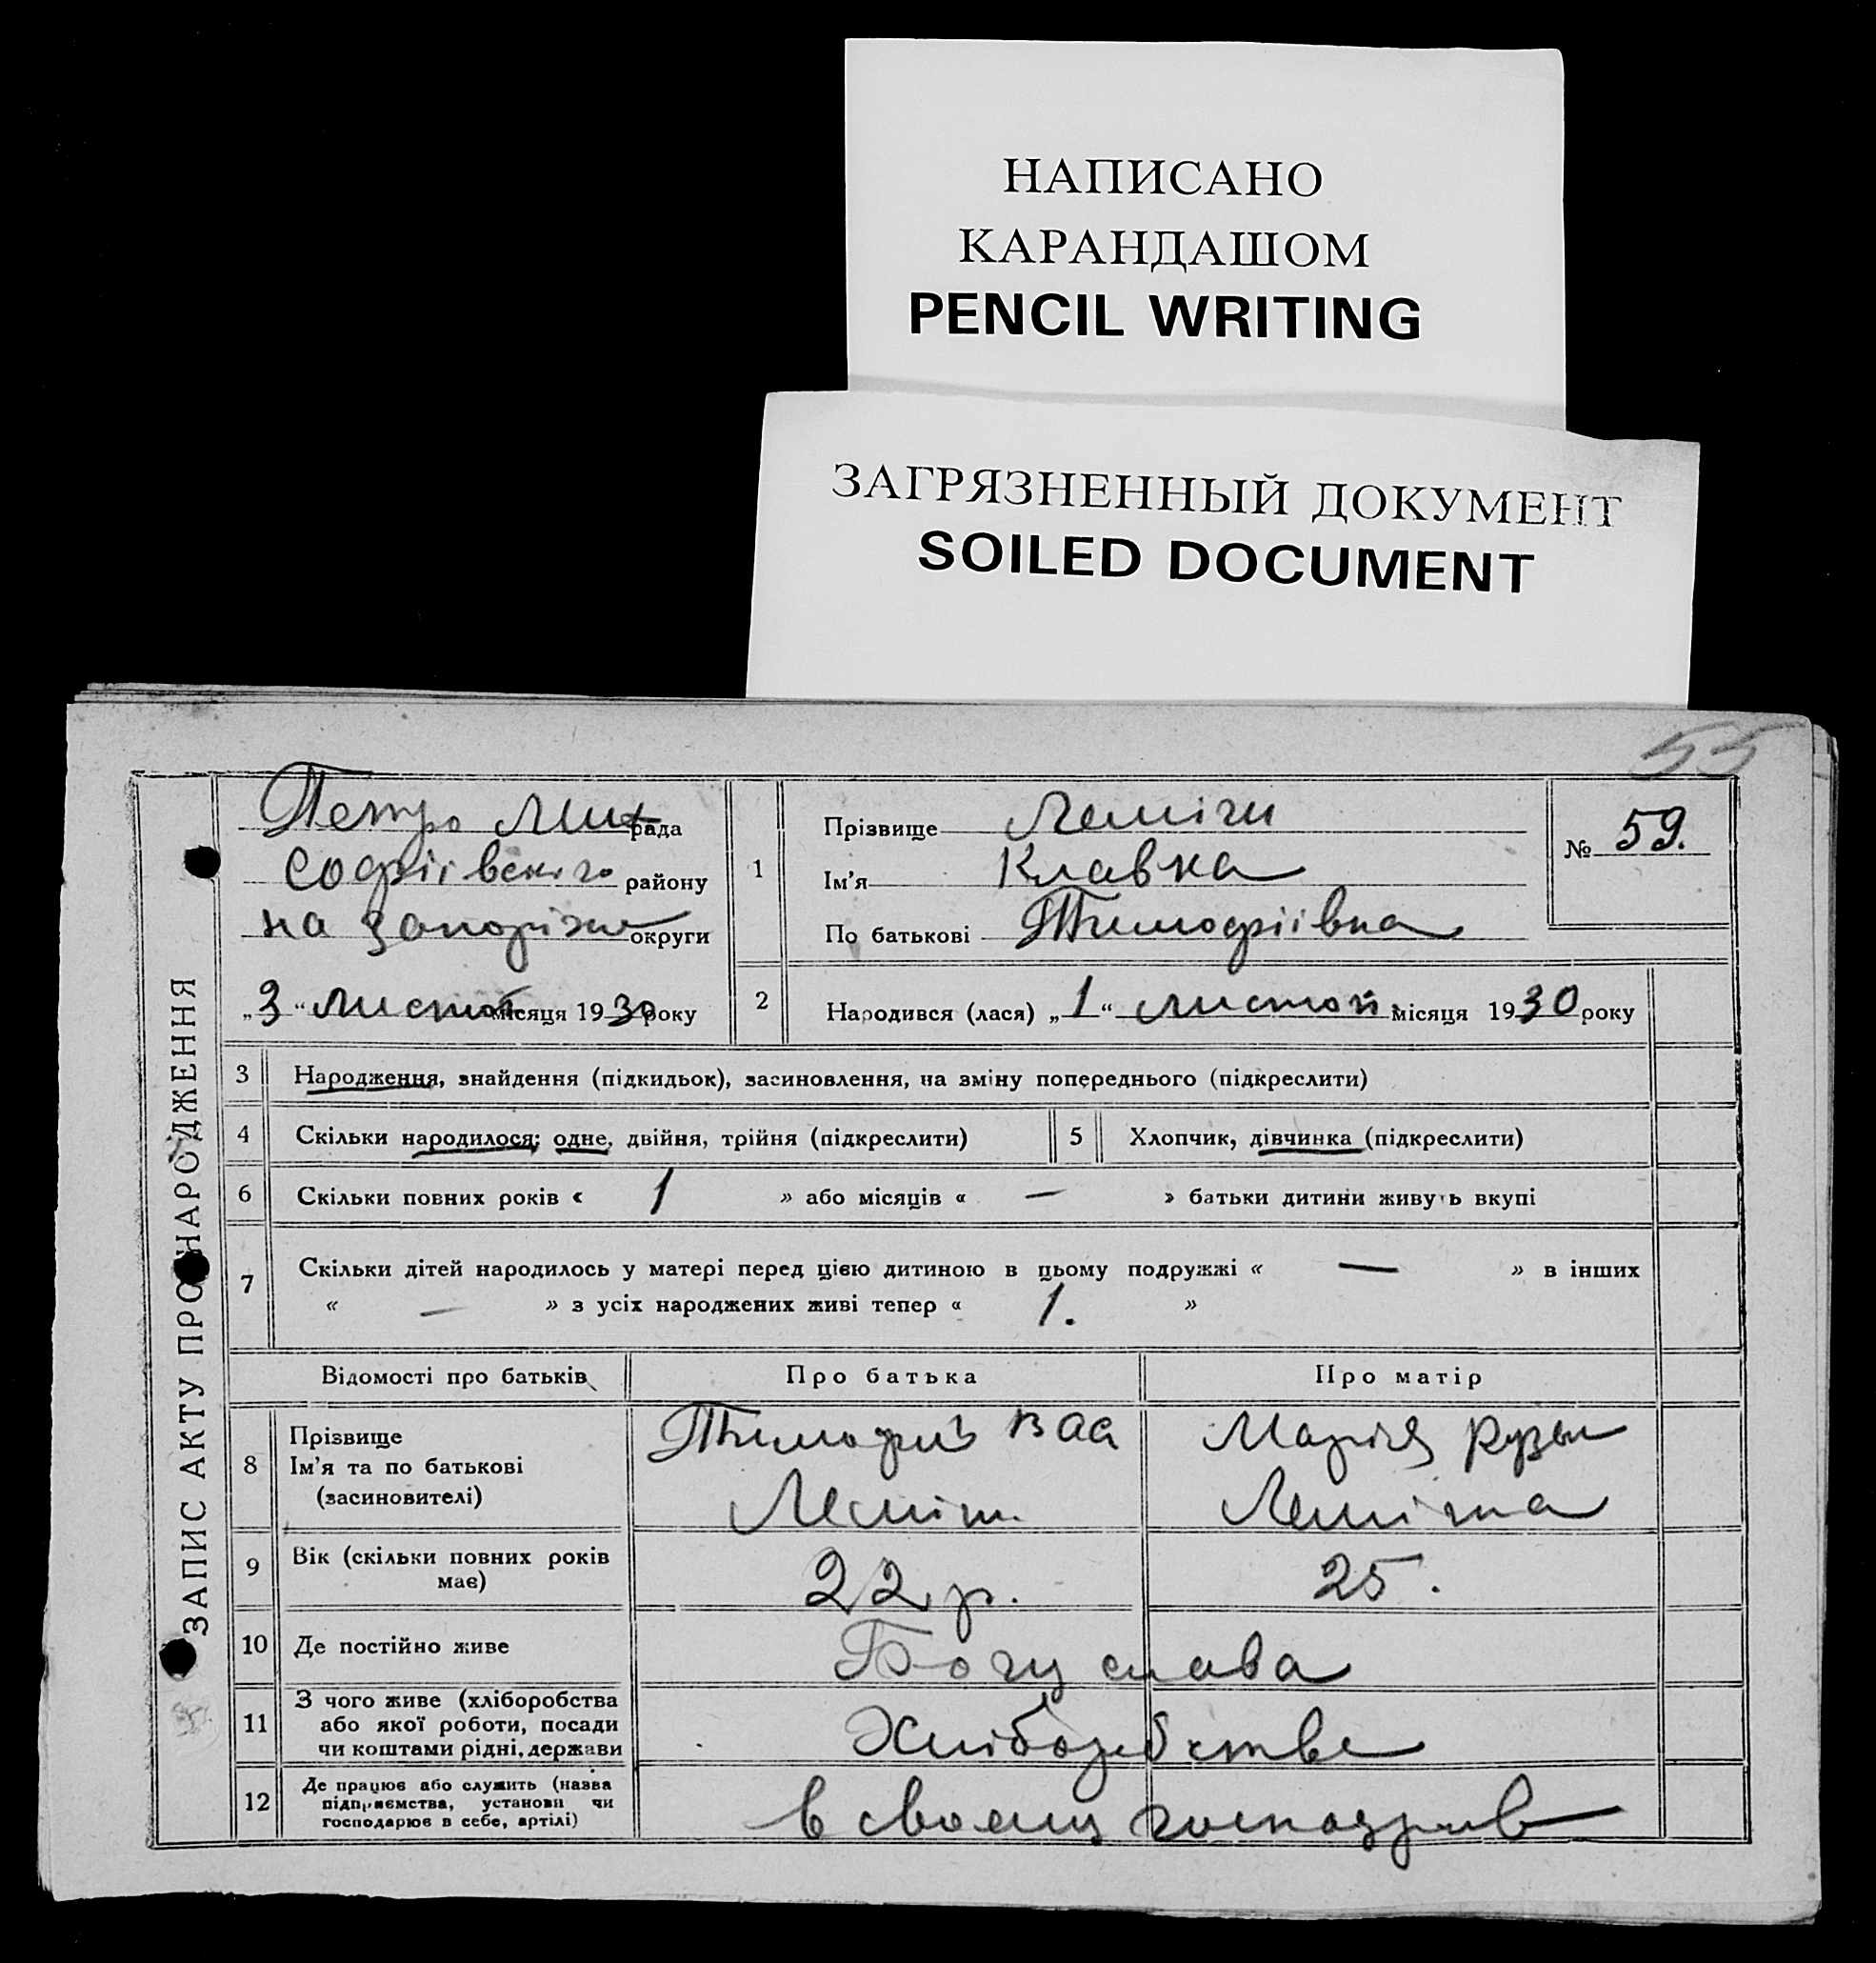 НАПИСАНО
КАРАНДАШОМ
PENCIL WRITING
ЗАГРЯЗНЕННЫЙ ДОКУМЕНТ
SOILED DOCUMENT
55
ЗАПИС АКТУ ПРО НАРОДЖЕННЯ
Петро Мих рада
Софіївського району
на Запоріжжі округи
„3“ листоп місяця 1930 року
1
Прізвище
Ім'я Клавка
По батькові Тимофіївна
№ 59.
2 Народився (лася) „1“ листоп місяця 1930 року
3 Народження, знайдення (підкидьок), засиновлення, на зміну попереднього (підкреслити)
4 Скільки народилося; одне, двійня, трійня (підкреслити)
5 Хлопчик, дівчинка (підкреслити)
6 Скільки повних років « 1 » або місяців « — » батьки дитини живуть вкупі
7 Скільки дітей народилось у матері перед цією дитиною в цьому подружжі « — » в інших
« — » з усіх народжених живі тепер « 1. »
Відомості про батьків Про батька Про матір
8 Прізвище
Ім'я та по батькові
(засиновителі)
Тимофій Вас
Марія
9 Вік (скільки повних років
має)
22 р. 25.
10 Де постійно живе Богуслава
11 З чого живе (хліборобства
або якої роботи, посади
чи коштами рідні, держави
Хліборобство
12 Де працює або служить (назва
підприємства, установи чи
господарює в себе, артілі)
в своему